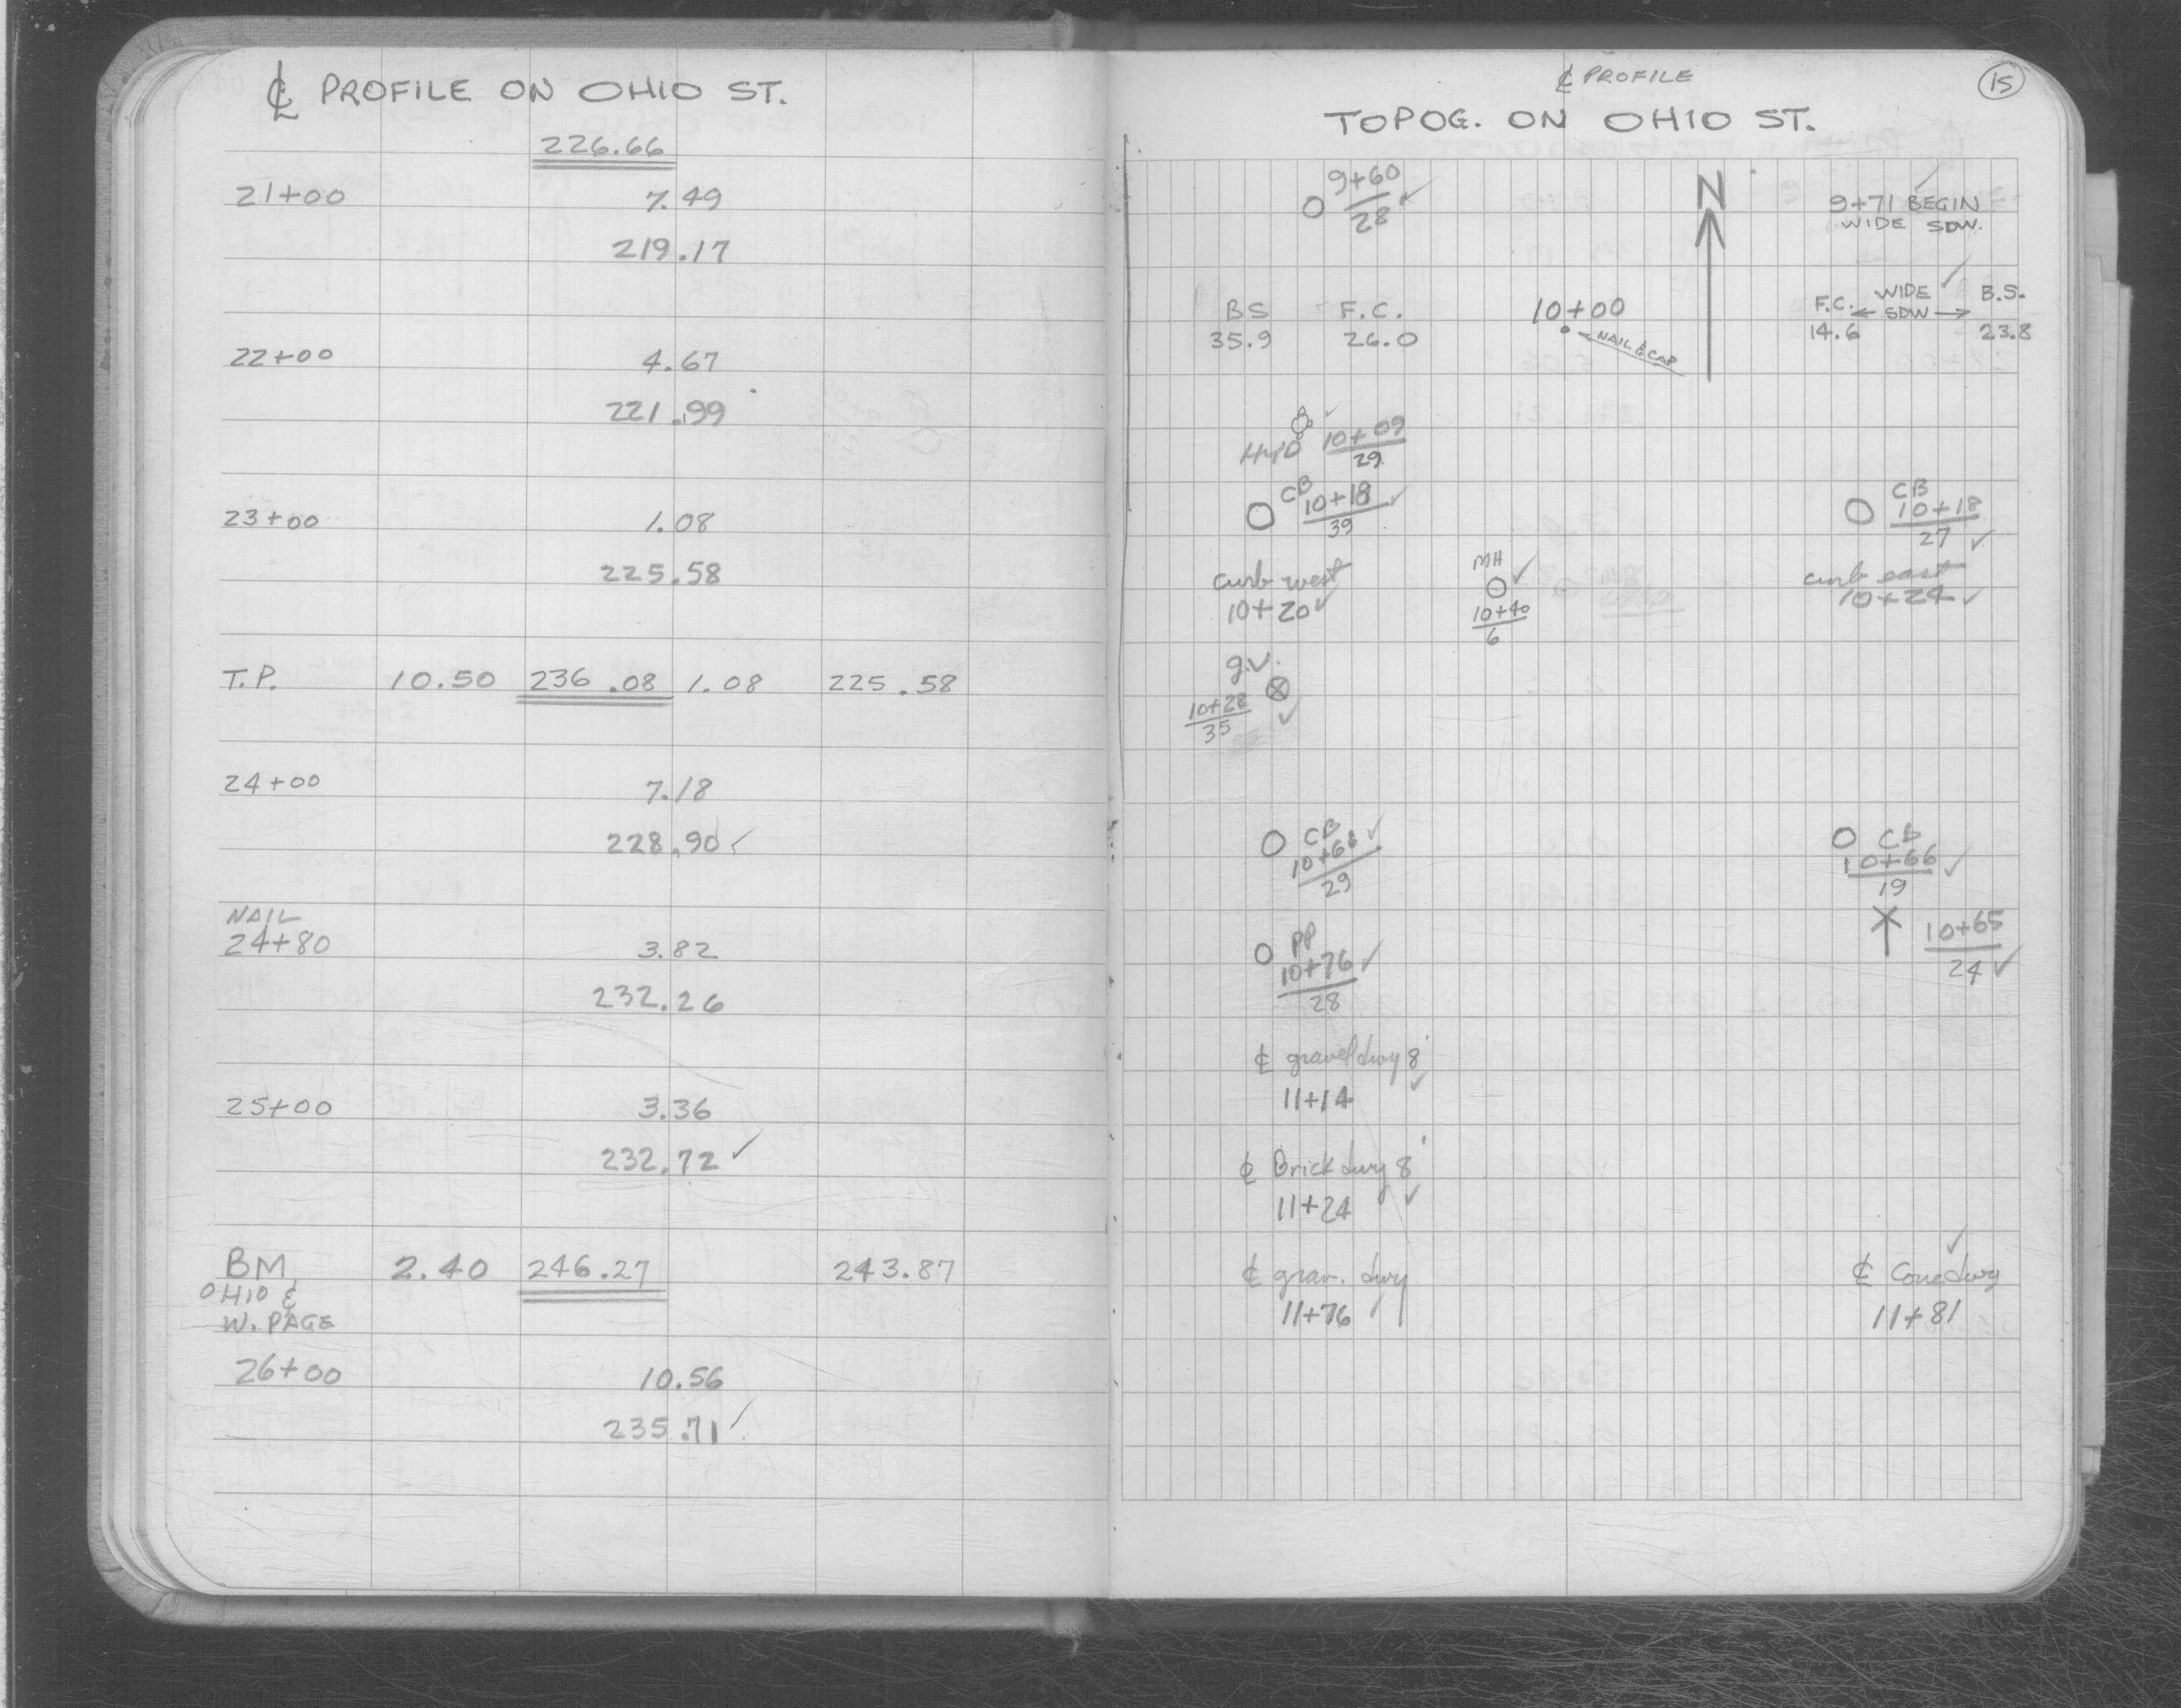 ℄ PROFILE ON OHIO ST.
226.66
21+00 7.49
219.17
22+00 4.67
221.99
23+00 1.08
225.58
T.P. 10.50 236.08 1.08 225.58
24+00 7.18
228.90 ✓
NAIL
24+80 3.82
232.26
25+00 3.36
232.72 ✓
BM 2.40 246.27 243.87
OHIO &
W. PAGE
26+00 10.56
235.71 ✓
℄ PROFILE
15
TOPOG. ON OHIO ST.
9+60
28 ✓
N
9+71 BEGIN
WIDE SDW.
BS F.C.
35.9 26.0
10+00
NAIL & CAP
F.C. ← WIDE SDW → B.S.
14.6 23.8
HYD 10+09
29
CB
10+18 ✓
39
CB
10+18
27 ✓
curb west
10+20 ✓
MH ✓
10+40
6
curb east
10+24 ✓
g.v.
10+28
35 ✓
CB
10+68 ✓
29
CB
10+66 ✓
19
PP
10+76 ✓
28
10+65
24 ✓
℄ gravel dwy 8'
11+14 ✓
℄ Brick dwy 8'
11+24 ✓
℄ grav. dwy
11+76 ✓
℄ Conc dwy ✓
11+81